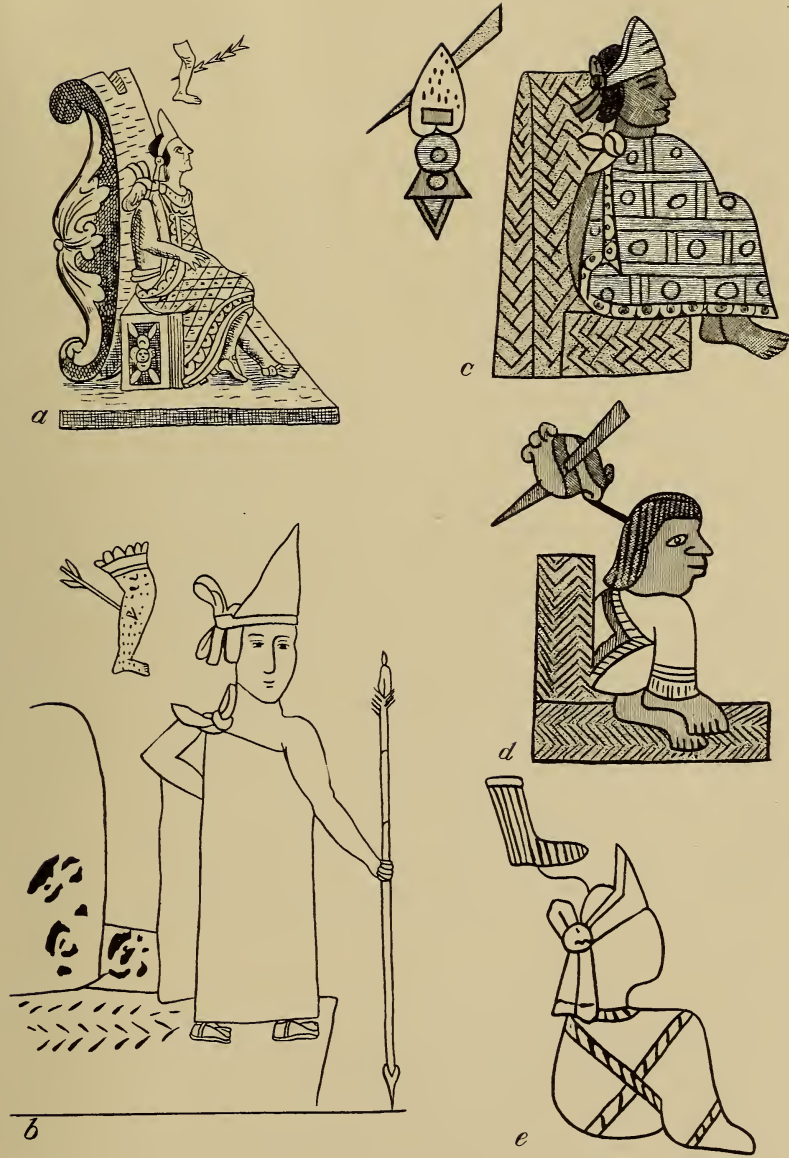 a
c
d
b
e